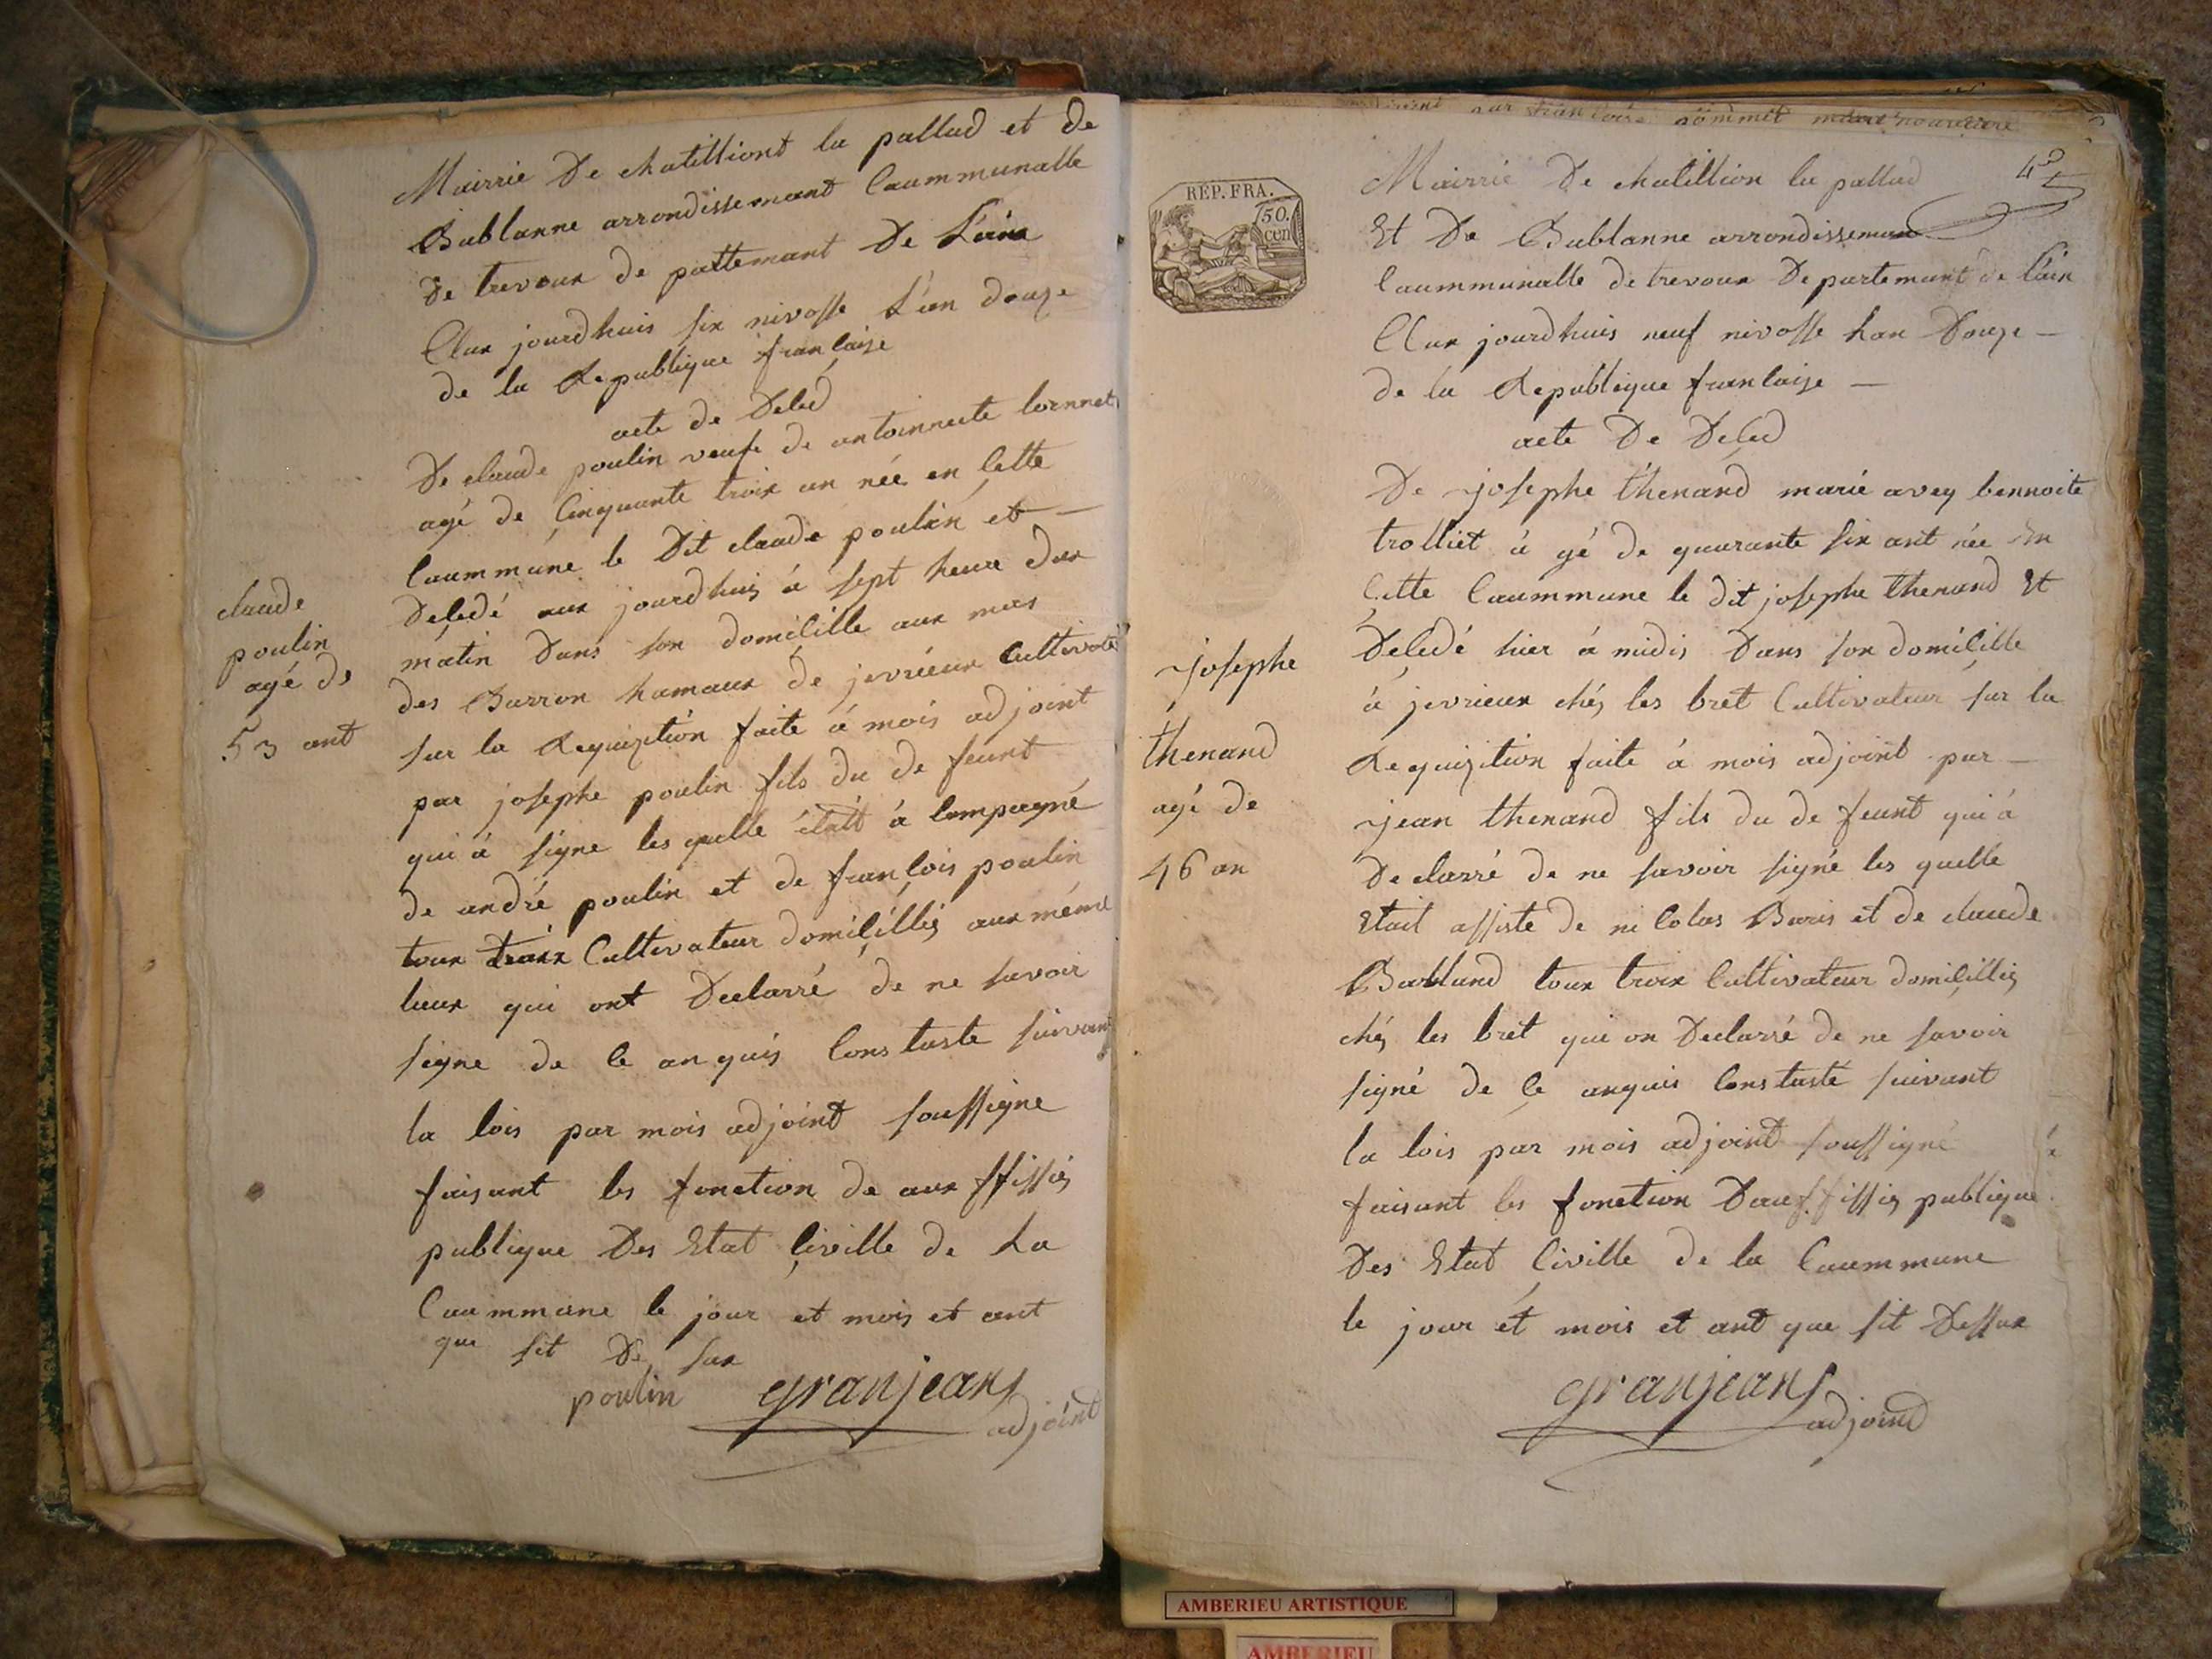 Mairrie De chatilliont la pallud et de
Bublanne arrondissemant Caummunalle
De trevoux de pattemant De L'ain
Aux jourdhuis six nivosse L'an douze
de la Republique francaise
acte de Deled
De claude poulin veufe de antoinnette
agé de Cinquante troix an née en Cette
Caummune le Dit claude poulin et —
Deledé aux jourdhuis á sept heure dux
matin Dans son domiçille aux mas
des Barron hamaux de jevrieux Cultivate
sur la Requizition faite á mois adjoint
par josephe poulin fils du de feunt
qui á signe les quelle était á Compagné
de andré poulin et de françois poulin
toux troix Cultivateur domiçilliés aux même
lieux qui ont Declarré de ne savoir
signe de Ce an quis Constaste suivant
la lois par mois adjoint soussigne
faisant les fonction de aux ffissiés
publique Des Etat çiville de La
Caummune le jour et mois et ant
que sit De sux
poulin granjean
adjoint
claude
poulin
agé de
53 ant
REP. FRA.
50.
cen
4
Mairrie De chatillion la pallud
Et De Bublanne arrondissemant
Caummunalle de trevoux Departemant de l'ain
Aux jourdhuis neuf nivosse han Douze —
de la Republique francaise —
acte De Deled
De josephe thenand marie avey bennoite
trolliet á gé de quarante six ant née En
Çette Caummune le dit josephe thenand Et
Deledé hier á midis Dans son domiçille
á jevrieux chés les bret Cultivateur sur la
Requizition faite á mois adjoint par —
jean thenand fils du de feunt qui á
Declarré de ne savoir signé les quelle
Etait assiste de nicolas Baris et de claude
toux troix Cultivateur domiçilliés
chés les bret qui on Declarré de ne savoir
signé de Çe anquis Constasté suivant
la lois par mois adjoint soussigné
faisant les fonction Dauffissiés publique
Des Etat Çiville de la Caummune
le jour et mois et ant que sit Dessux
granjean
adjoind
josephe
thenand
agé de
46 an
AMBERIEU ARTISTIQUE
AMBERIEU